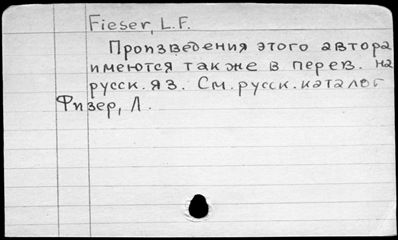 Fieser, L.F.
Произведения этого автора
имеются также в перев. на
русск. яз. См. русск. каталог
Физер, Л.